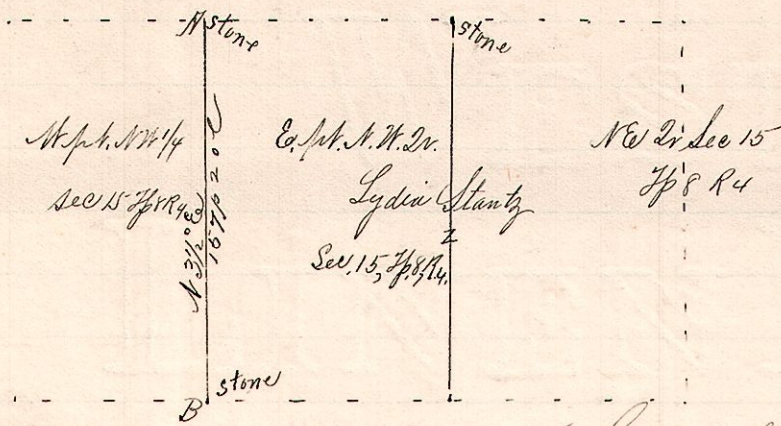 N stone
stone
W. pt. N.W. 1/4
Sec 15 Tp 8 R 4
N 3 1/2° E
157 p 20 l
E. pt. N. W. Qr.
Lydia Stantz
Sec. 15, Tp. 8, R. 4.
Z
NE Qr Sec 15
Tp 8 R 4
stone
B